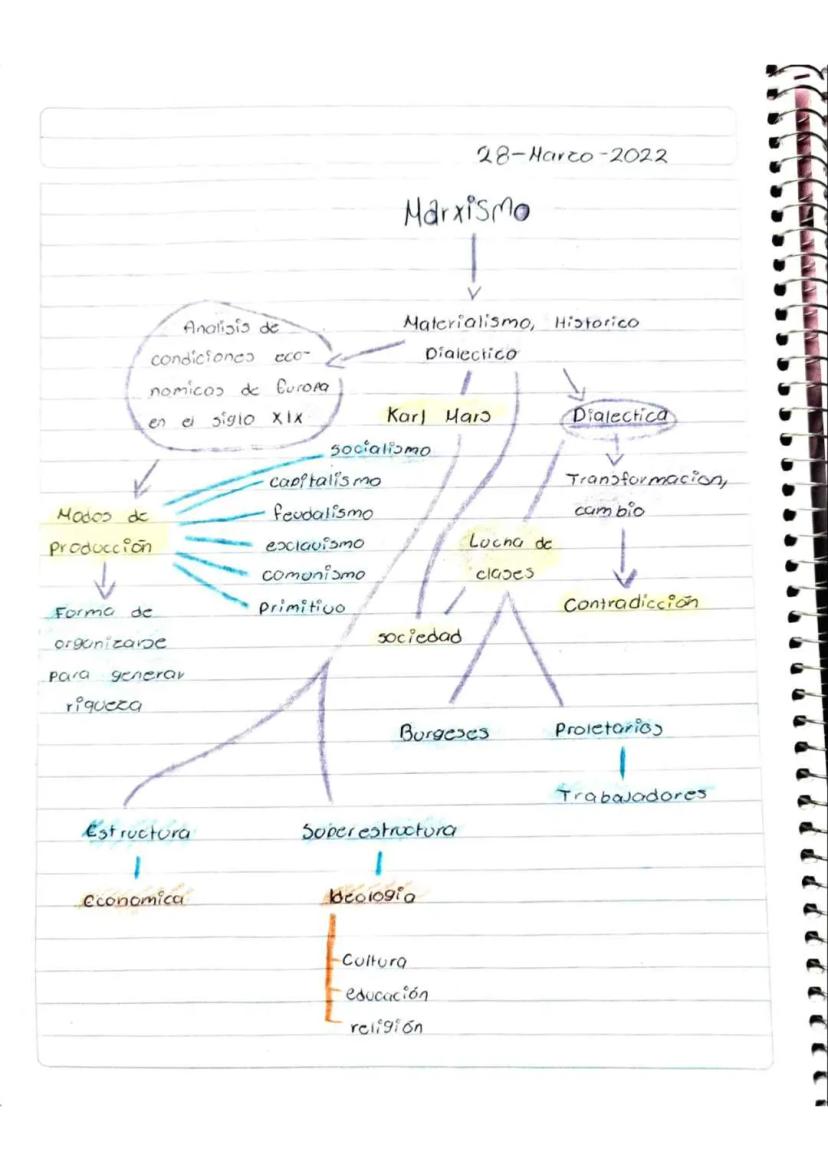 28-Marzo-2022
Marxismo
Materialismo, Historico
Dialectico
Analisis de
condiciones eco-
nomicos de Europa
en el siglo XIX
Karl Marx
Dialectica
Transformacion,
cambio
Contradicción
socialismo
capitalismo
feudalismo
esclavismo
comunismo
Primitivo
Modos de
producción
Forma de
organizarse
para generar
riqueza
Lucha de
clases
sociedad
Burgeses
Proletarios
Trabajadores
Estructura
Economica
Superestructura
Ideologia
Cultura
educación
religión